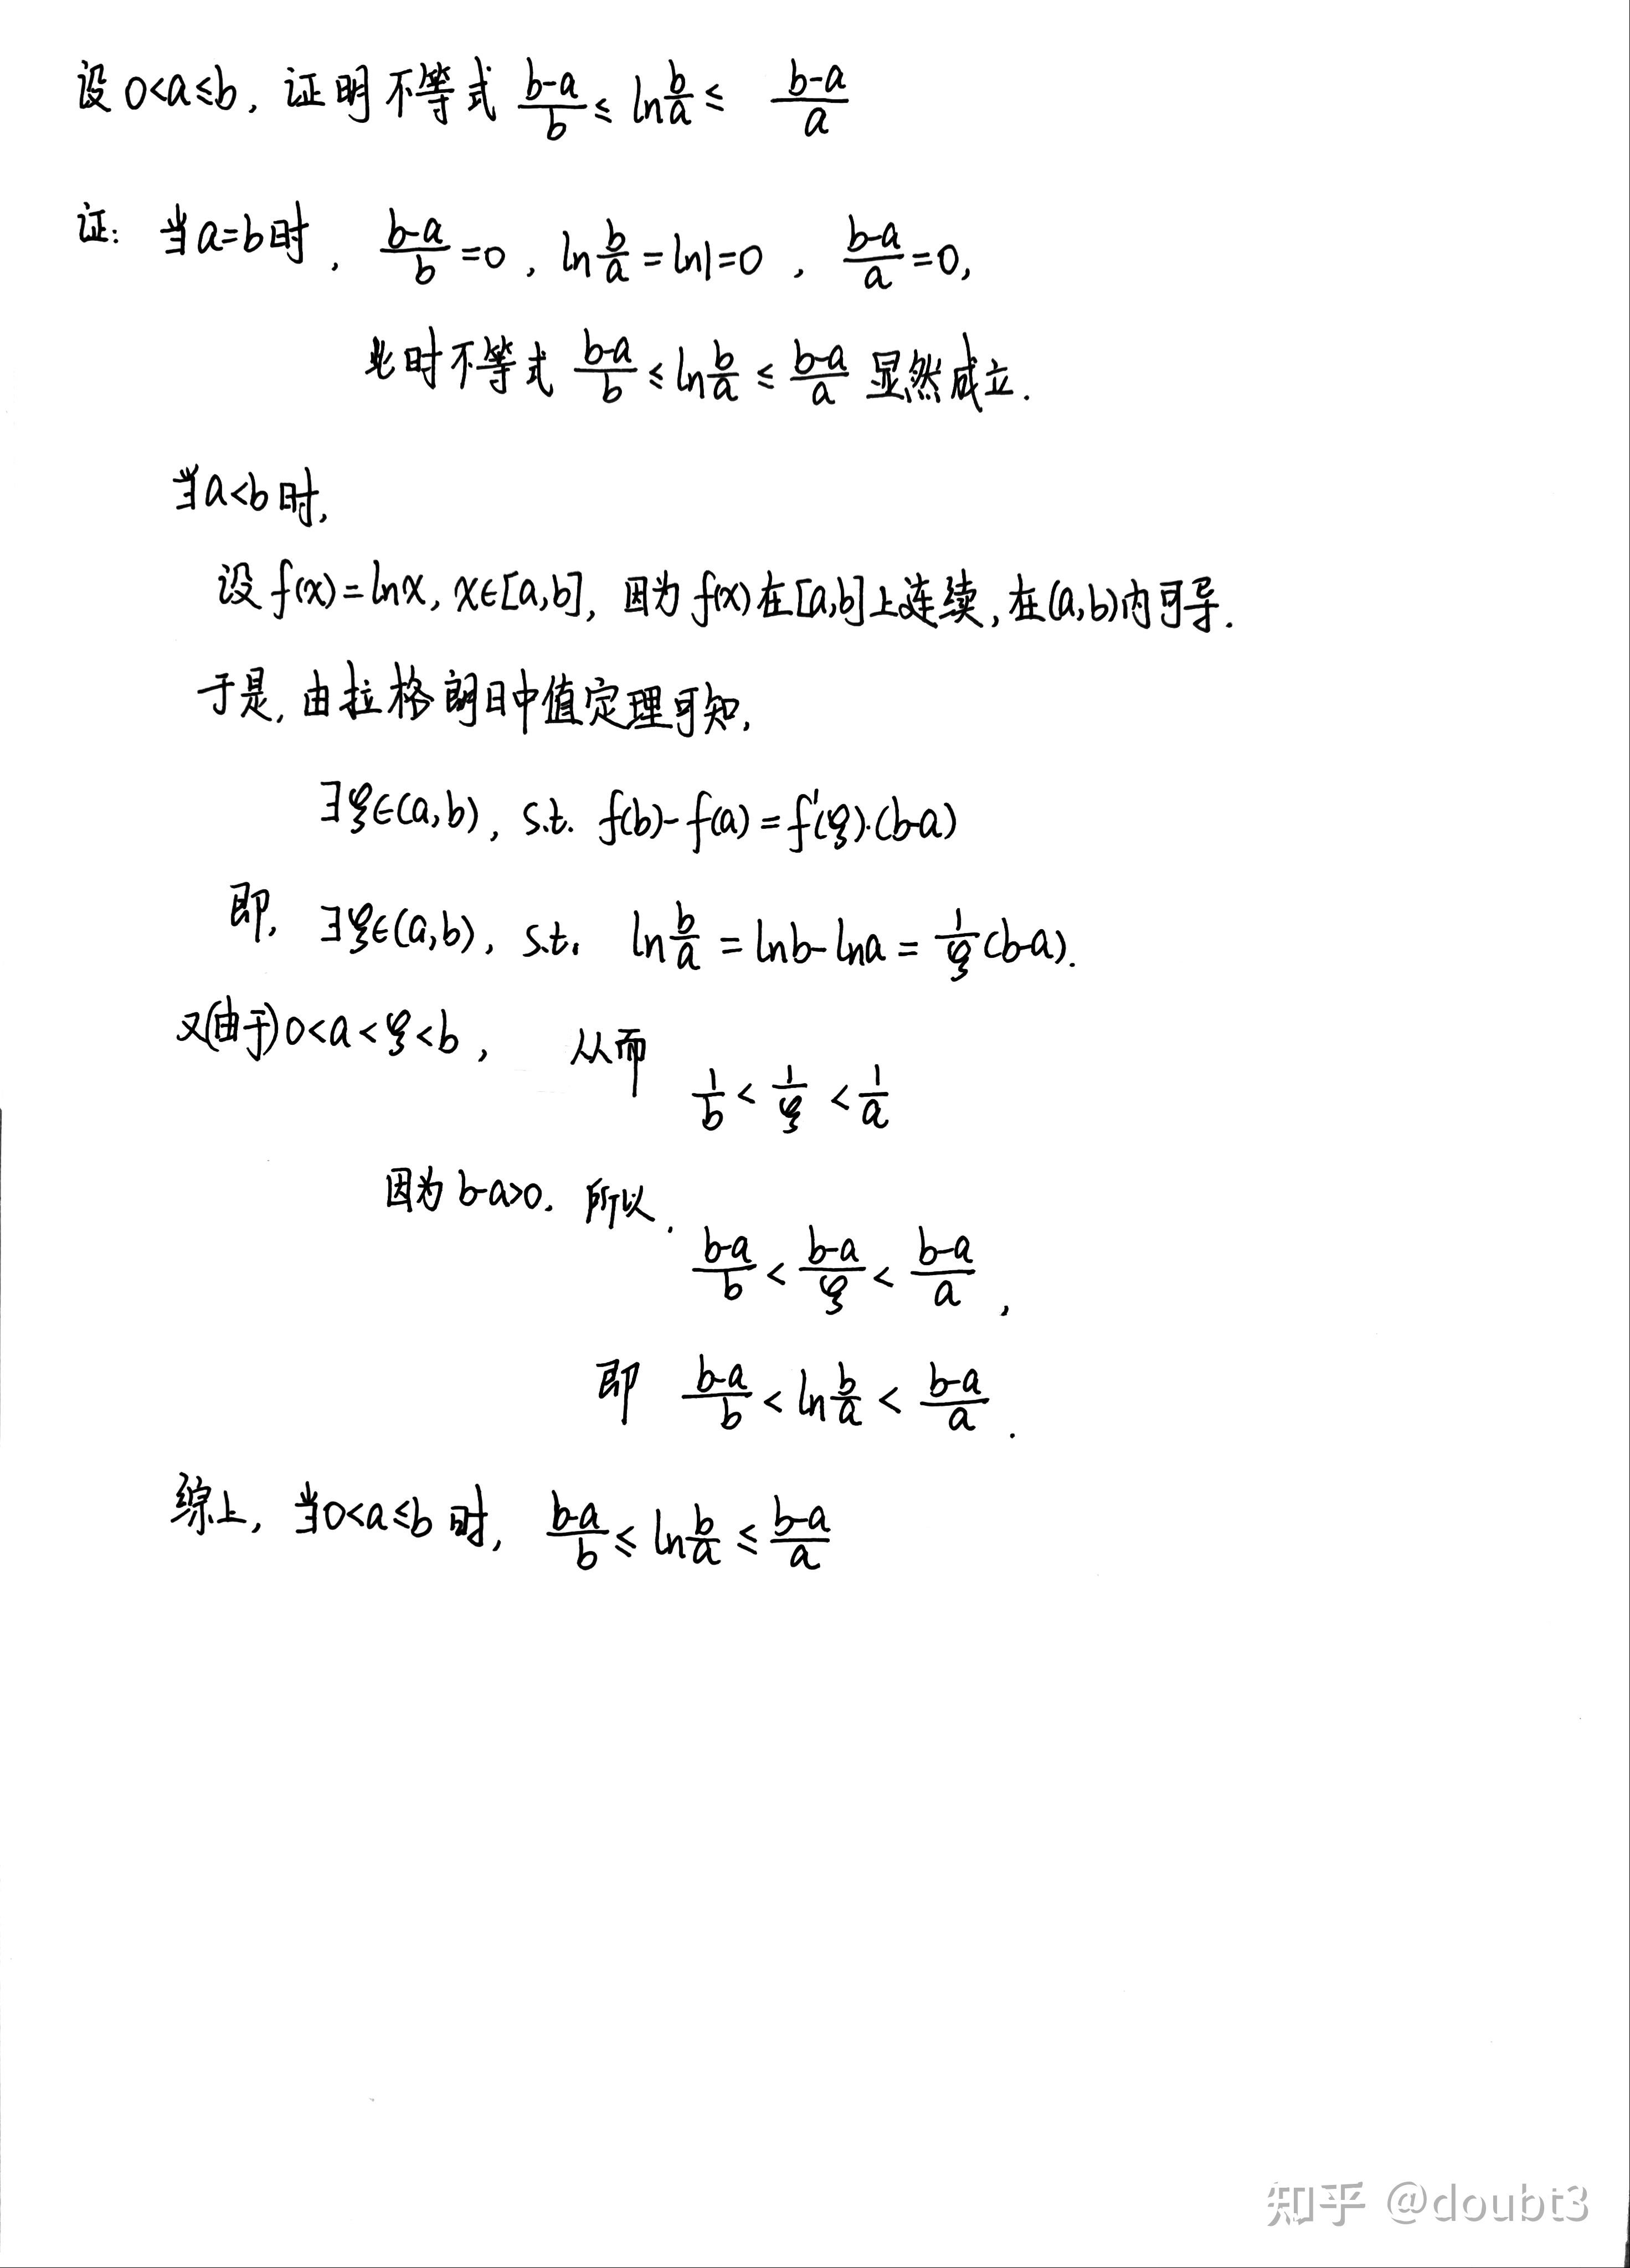 设 0<a≤b, 证明不等式 \frac{b-a}{b} ≤ ln\frac{b}{a} ≤ \frac{b-a}{a}
证: 当a=b时, \frac{b-a}{b}=0, ln\frac{b}{a}=ln1=0, \frac{b-a}{a}=0,
此时不等式 \frac{b-a}{b} ≤ ln\frac{b}{a} ≤ \frac{b-a}{a} 显然成立.
当a<b时,
设f(x)=lnx, x∈[a,b], 因为f(x)在[a,b]上连续,在(a,b)内可导.
于是,由拉格朗日中值定理可知,
∃ξ∈(a,b), s.t. f(b)-f(a)=f'(ξ)·(b-a)
即, ∃ξ∈(a,b), s.t. ln\frac{b}{a} = lnb-lna = \frac{1}{ξ}(b-a).
又(由于)0<a<ξ<b, 从而
\frac{1}{b} < \frac{1}{ξ} < \frac{1}{a}
因为b-a>0, 所以,
\frac{b-a}{b} < \frac{b-a}{ξ} < \frac{b-a}{a},
即 \frac{b-a}{b} < ln\frac{b}{a} < \frac{b-a}{a}.
综上, 当0<a≤b时, \frac{b-a}{b} ≤ ln\frac{b}{a} ≤ \frac{b-a}{a}
知乎 @doubt3